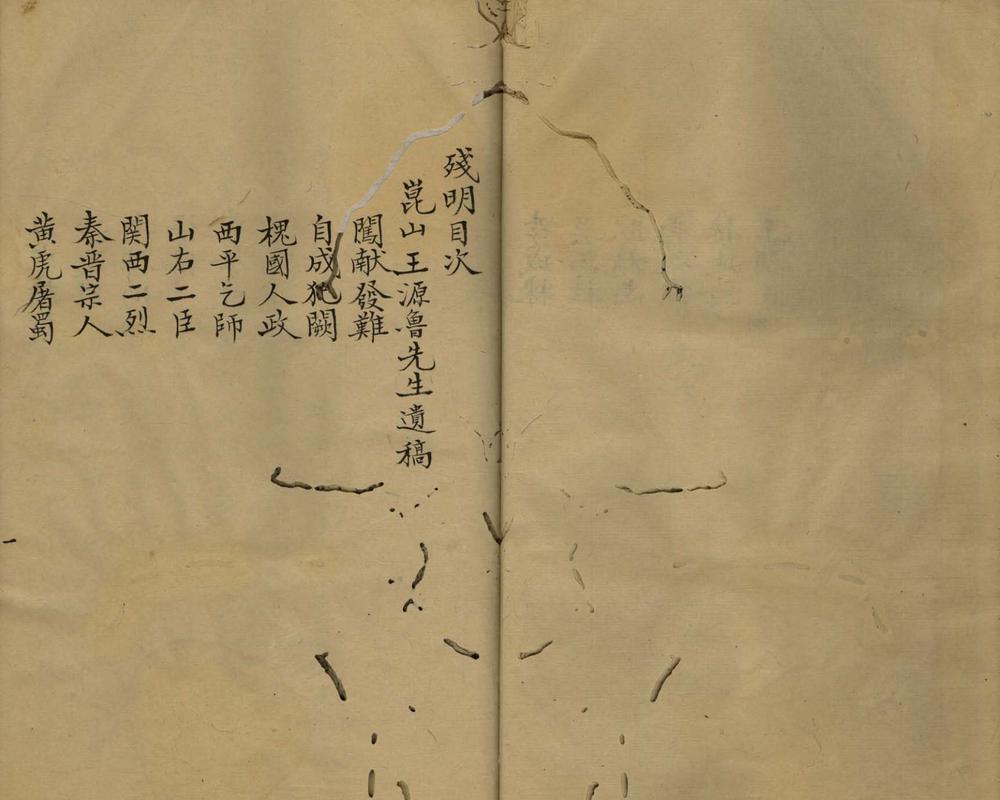 殘明目次
崑山王源魯先生遺稿
闖献發難
自成犯闕
槐國人政
西平乞師
山右二臣
関西二烈
秦晋宗人
黄虎屠蜀